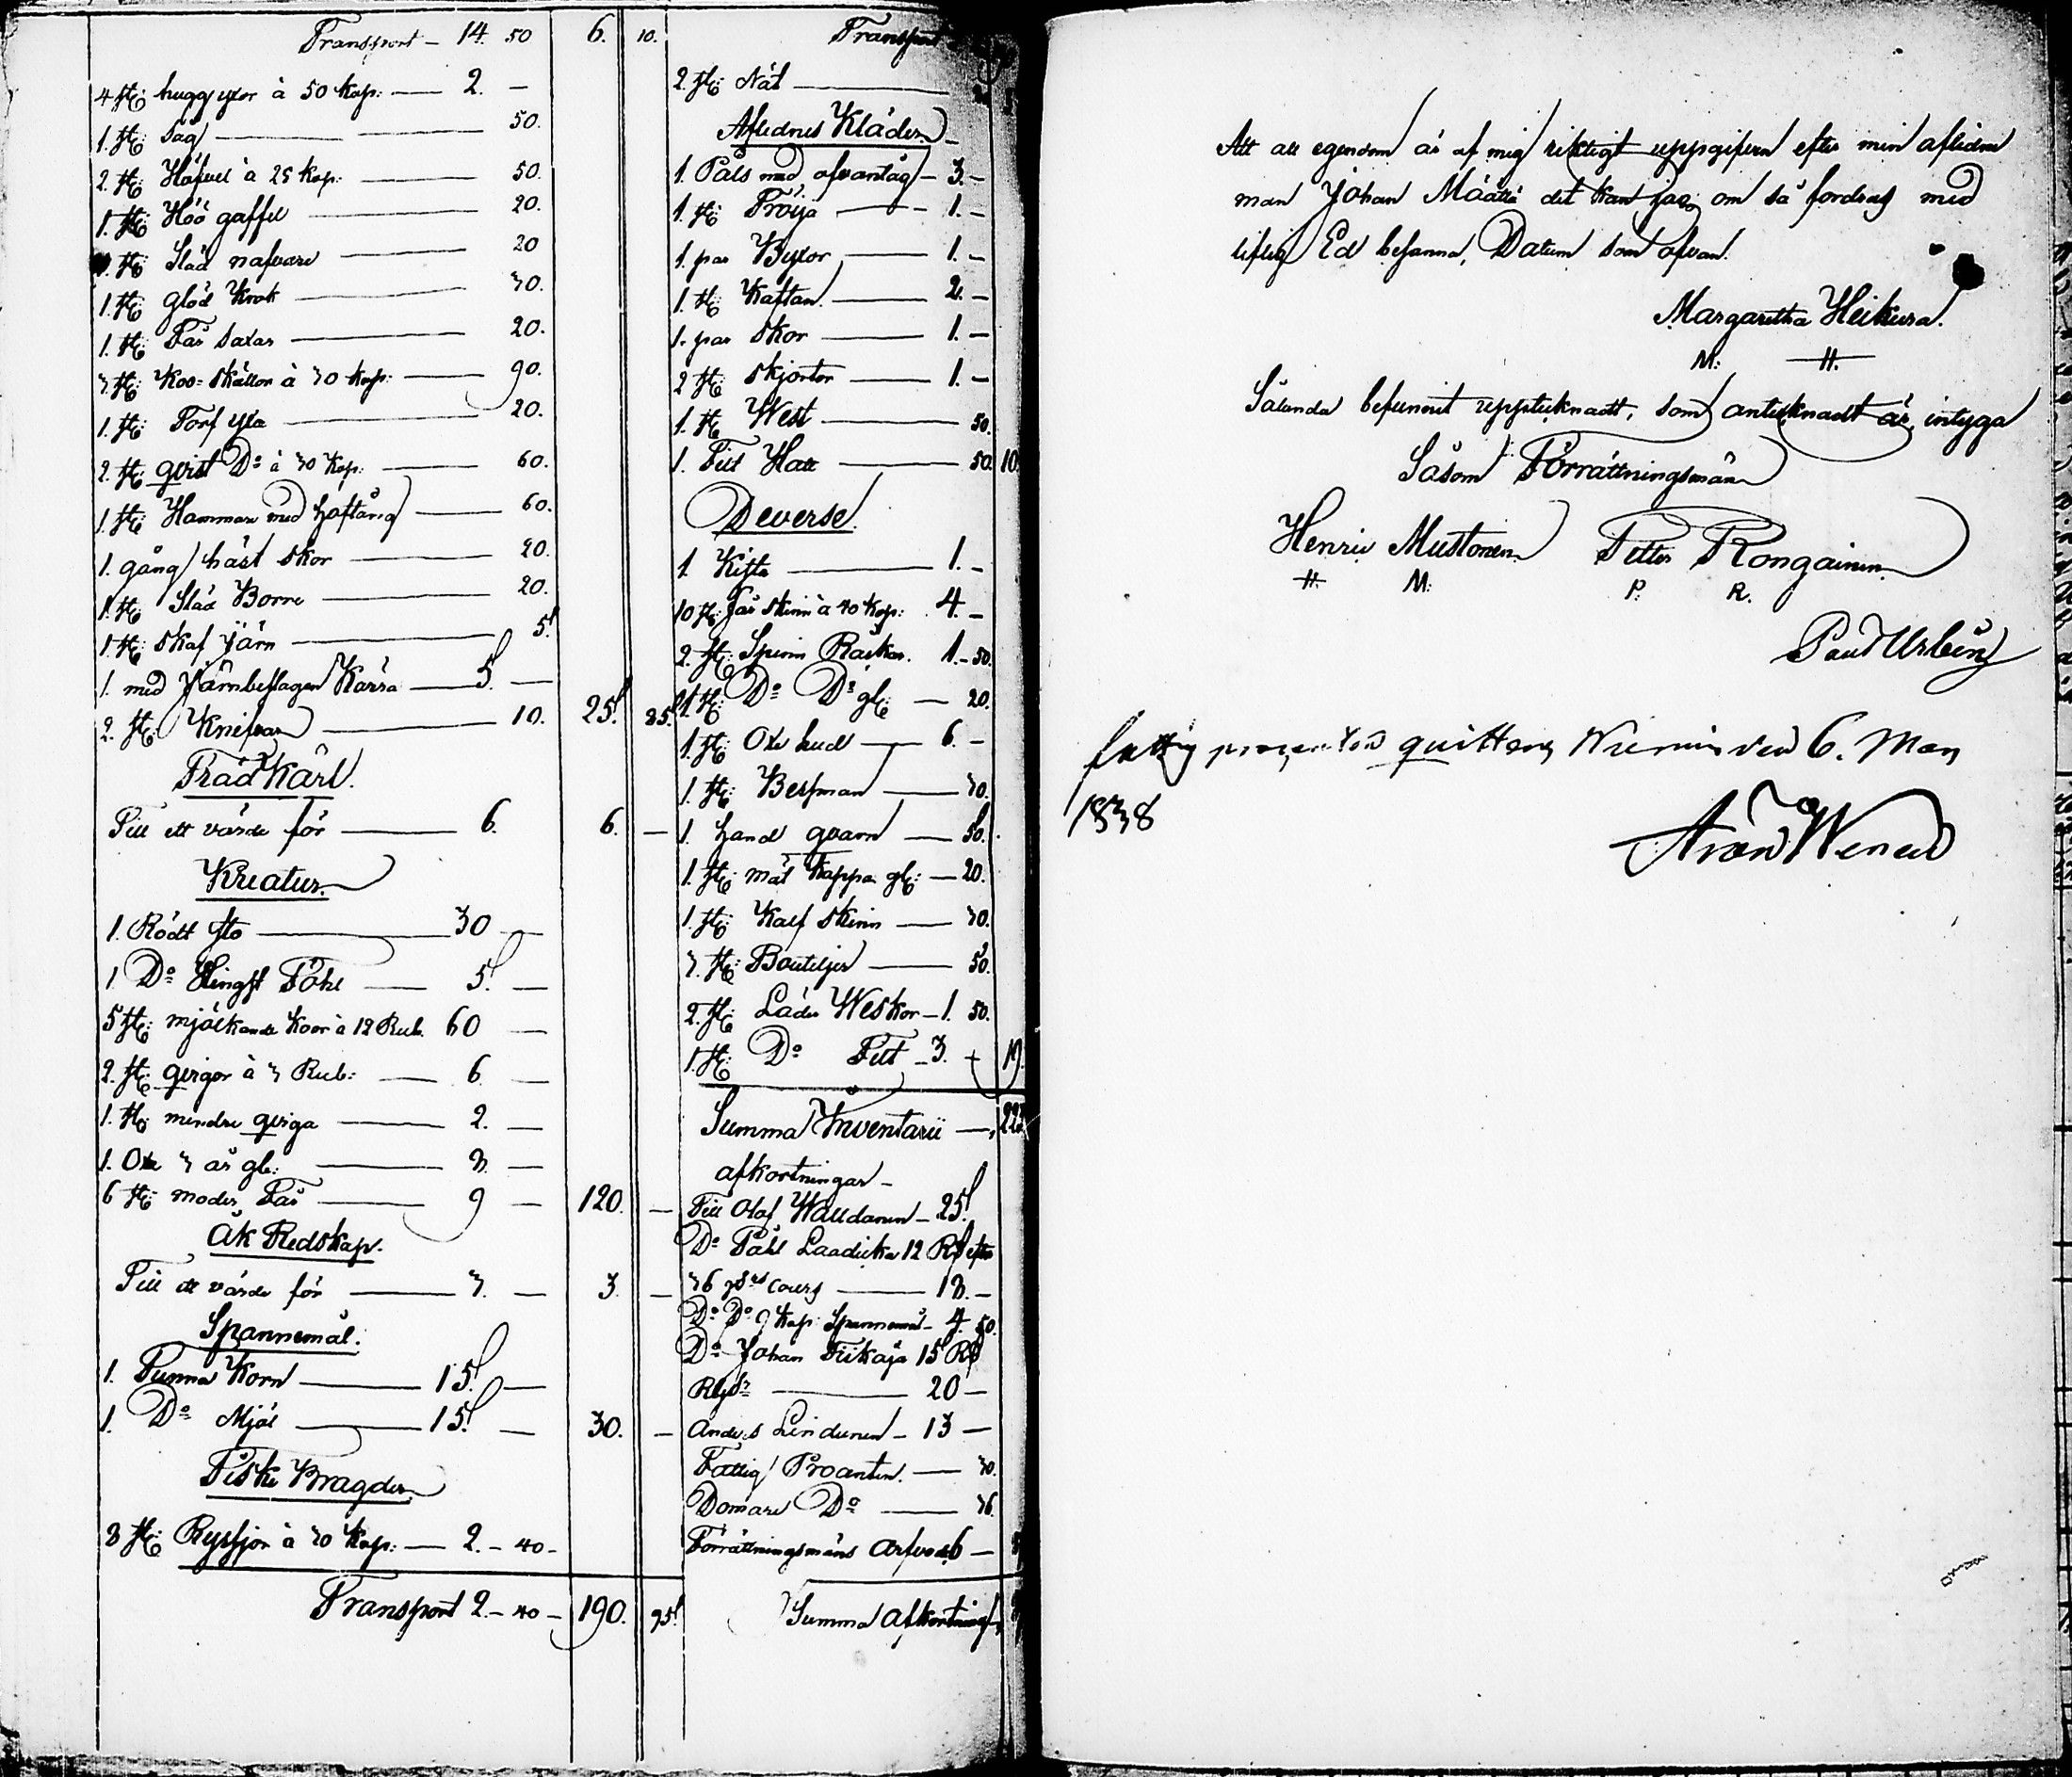 Transport - 14. 50 6. 10.
4 st: hugg yxor à 50 kop: — 2. —
1. st: såg — 50.
2. st: Höfvel à 25 kop: — 50.
1. st: Höö gaffel — 20.
1. st: Släd nafvare — 20
1. st: glöd krok — 30.
1. st: Får saxar — 20.
3. st: Koo-skällor à 30 kop: — 90.
1. st: Torf yxa — 20.
2. st: qvist Do à 30 kop: — 60.
1. st: Hammare med hoftång — 60.
1. gång häst skor — 20.
1. st: Släd Borre — 20.
1. st: skaf järn — 5.
1. med Järnbeslagen Kärra — 5. —
2. st: Knifvar — 10. 25. 85.
Träd Kärl.
Till ett värde för — 6. 6. —
Kreatur.
1. Rödt sto — 30 —
1 Do Hingst Fåhl — 5. —
5 st: mjölkande koor à 12 Rub. 60 —
2. st: qvigor à 3 Rub: — 6 —
1. st: mindre qviga — 2. —
1. Oxe 3 år gl: — 8 —
6 st: moder Får — 9 — 120. —
Åk Redskap.
Till ett värde för — 3. — 3. —
Spannemål.
1. Tunna Korn — 15. —
1. Do Mjöl — 15. — 30. —
Fiske Bragder
8 st: Ryssjor à 30 kop: — 2. - 40 -
Transport 2. - 40 - 190. 95.
Transport
2. st: Nät —
Aflednes Kläder
1. Päls med ofvantåg — 3. —
1. st: Tröija — 1. —
1. par Byxor — 1. —
1. st: Kaftan — 2. —
1. par skor — 1. —
2 st: skjortor — 1. —
1. st: West — 50.
1. Filt Hatt — 50. 10.
Deverse.
1. Kista — 1. —
10 st: får skinn à 40 kop: 4. —
2. st: Spinn Råckar. 1. - 50.
1. st: Do Do gl: — 20.
1. st: Oxe hud — 6. —
1. st: Besman — 30.
1. hand qvarn — 50.
1. st: mål kappe gl: — 20.
1. st: Kalf skinn — 30.
3. st: Bouteljer — 50.
2. st: Läder Weskor — 1. 50.
1. st: Do Filt — 3. + 19.
Summa Inventarii —
afkortningar —
Till Olof Walldanen — 25.
Do Påhl Laadicka 12 Rd efter
cours — 18. —
Do Do kap: Spannemål — 4. 50.
Do Johan Tiikaja 15 Rd
Rgs — 20 —
Anders Lindunen — 13 —
Fattig Procenten. — 30.
Domare Do — 36.
Förrättningsmäns Arfvode 6 —
Summa Afkortning
Att all egendom är af mig riktigt uppgifven efter min aflidne
man Johan Määttä det kan jag om så fordras med
liflig Ed besanna, Datum som ofvan.
Margaretha Heikura.
M: H.
Sålunda befunnit upptecknadt, som antecknadt är, intyga
Såsom Förrättningsmän
Henric Mustonen Petter Rongainen
H. M: P: R.
Paul Urbin
fattig procenten quitteras Niemis den 6. Maij
1838
Aron Wenell